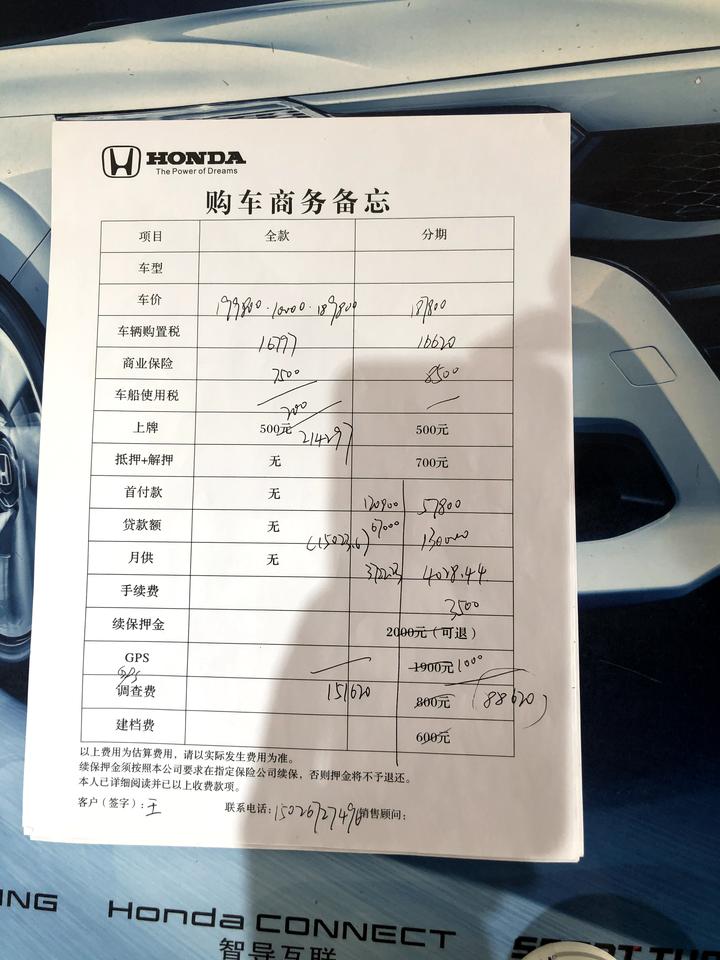 HONDA
The Power of Dreams
购车商务备忘
项目 全款 分期
车型
车价 199800.10000.189800 187800
车辆购置税 16797 16620
商业保险 7500 8500
车船使用税
200
上牌 500元 500元
214297
抵押+解押 无 700元
首付款 无 120900 57800
贷款额 无 67000 130000
月供 无 4028.44
手续费 3500
续保押金 2000元（可退）
GPS 1900元 1000
GPS
调查费 151620 800元 (88620)
建档费 600元
以上费用为估算费用，请以实际发生费用为准。
续保押金须按照本公司要求在指定保险公司续保，否则押金将不予退还。
本人已详细阅读并已以上收费款项。
客户（签字）：王 联系电话：15026727496 销售顾问：
NG
Honda CONNECT
智导互联